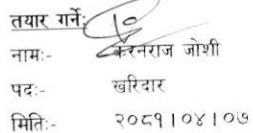 तयार गर्ने:
नाम:- करनराज जोशी
पद:- खरिदार
मिति:- २०८१।०४।०७